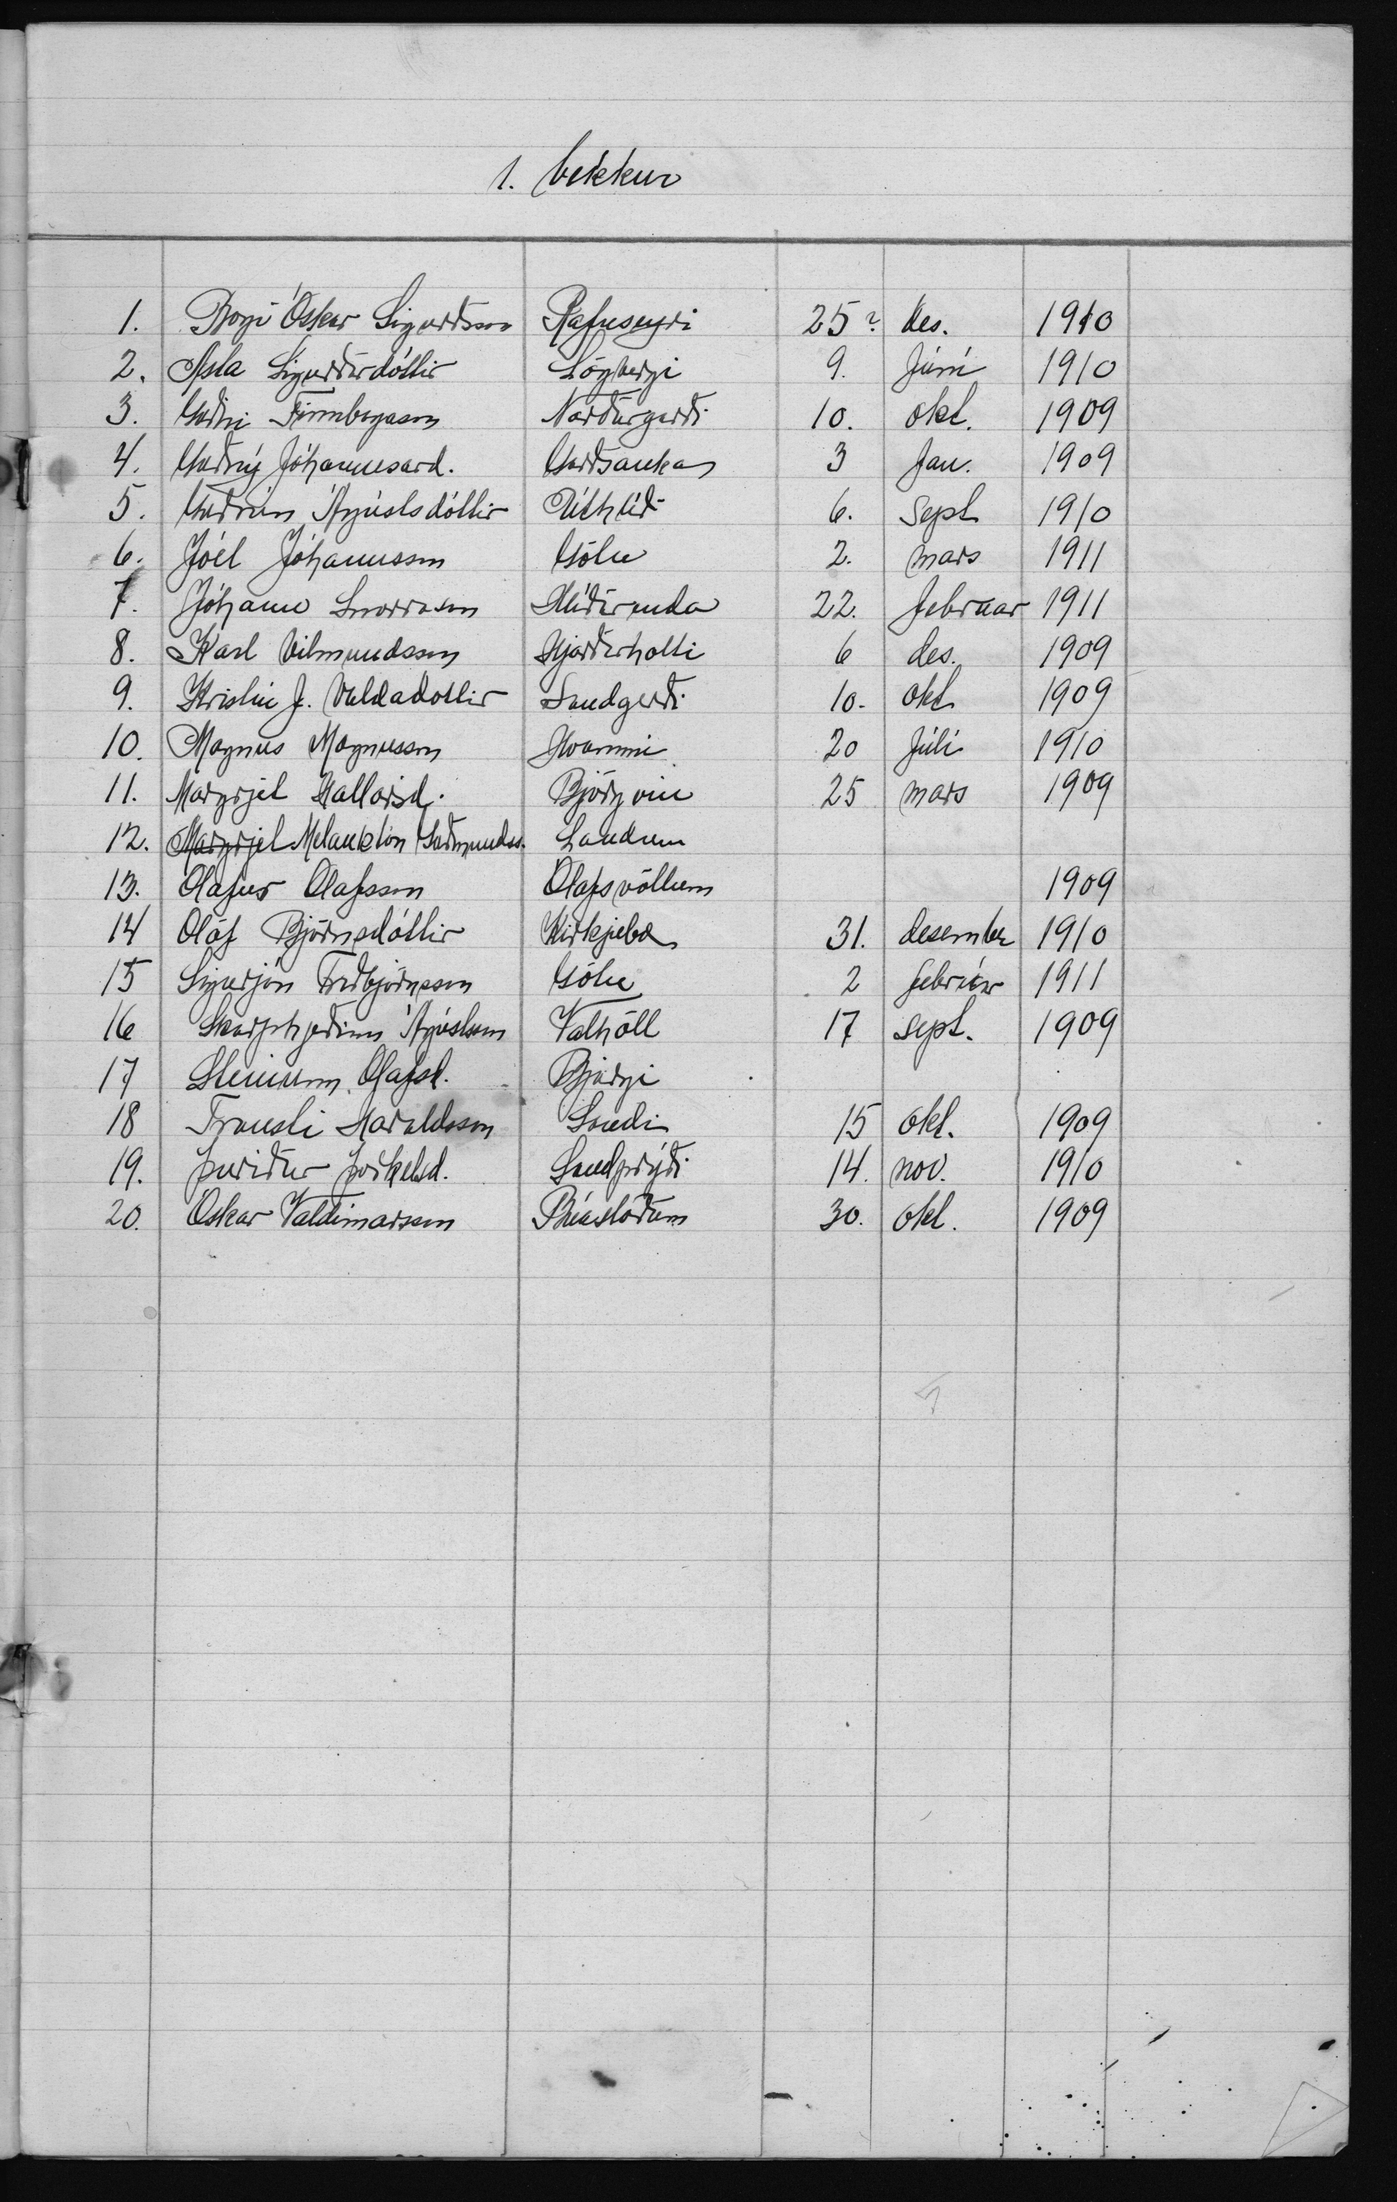 1. bekkur
1. Bogi Óskar Sigurðsson Rafnseyri 25? des. 1910
2. Ásta Sigurðardóttir Lögbergi 9. júní 1910
3. Guðni Finnbogason Norðurgerði 10. okt. 1909
4. Guðný Jóhannesard. 3 Jan. 1909
5. Guðrún Ágústsdóttir Úthlíð 6. Sept 1910
6. Jóel Jóhannsson Götu 2. mars 1911
7. Jóhann Snorrason Hlíðarenda 22. februar 1911
8. Karl Vilmundsson Hjarðarholti 6 des. 1909
9. Kristín J. Valdadóttir Sandgerði 10. okt 1909
10. Magnus Magnusson Hvammi 20 júlí 1910
11. Margrjet Hallorsd. Björgvin 25 mars 1909
12. Margrjet Melankton Guðmundss. Löndum
13. Olafur Olafsson Olafsvöllum 1909
14 Olöf Björnsdóttir Kirkjubæ 31. desember 1910
15 Sigurjón Friðbjörnsson Götu 2 febrúar 1911
16 Skarphjeðinn Ágústsson Valhöll 17 sept. 1909
17 Steinunn Olafsd. Bjargi
18 Trausti Haraldsson Sandi 15 okt. 1909
19. Þuriður Þorkelsd. Sandprýði 14. nov. 1910
20. Oskar Valdimarsson Búastöðum 30. okt. 1909